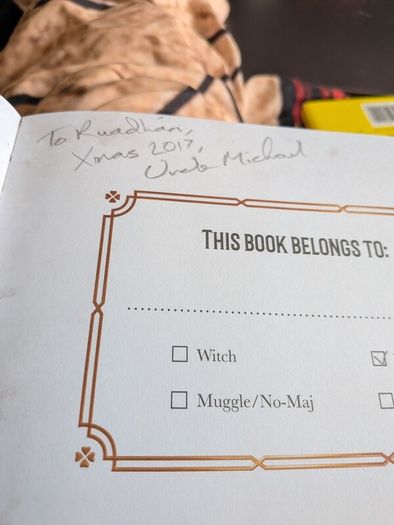 To Ruadhán,
Xmas 2017,
Uncle Michael
THIS BOOK BELONGS TO:
Witch
Muggle/No-Maj